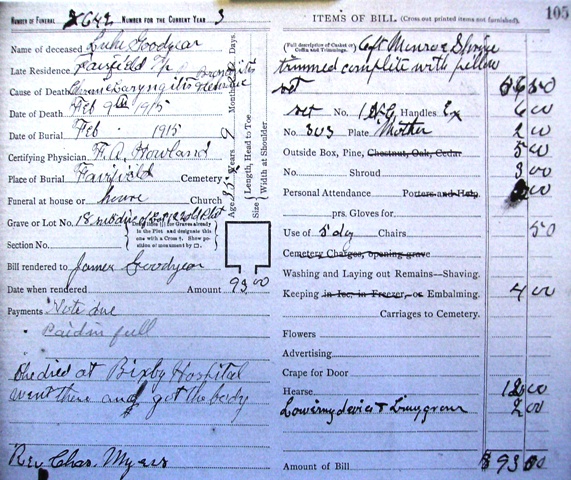 NUMBER OF FUNERAL 2642 NUMBER FOR THE CURRENT YEAR 3
Name of deceased Luke Goodyear
Late Residence, Fairfield Tp
Cause of Death
Date of Death Feb 9th 1915
Date of Burial Feb 1915
Certifying Physician F. A. Howland
Place of Burial Fairfield Cemetery
Funeral at house or home Church
Grave or Lot No. 18
Section No.
Bill rendered to James Goodyear
Date when rendered Amount 93.00
Payments Note due
Paid in full
She died at Bixby Hospital
went there and got the body
Rev. Chas. Myers
Age Years 9 Months Days.
Size Length, Head to Toe
Width at Shoulder.
105
ITEMS OF BILL (Cross out printed items not furnished).
(Full description of Casket or Coffin and Trimmings. 6ft Monroe
trimmed complete with pillow
set 56 50
set No. Handles Ex 6 00
No. 303 Plate Mother 2 00
Outside Box, Pine, Chestnut, Oak, Cedar 5 00
No. Shroud 3 00
Personal Attendance Porters and Help
prs. Gloves for
Use of 5 doz Chairs 50
Cemetery Charges, opening grave
Washing and Laying out Remains—Shaving.
Keeping in Ice, in Freezer, or Embalming. 4 00
Carriages to Cemetery.
Flowers
Advertising
Crape for Door
Hearse 12 00
Lowering device & 2 00
Amount of Bill $ 93 00